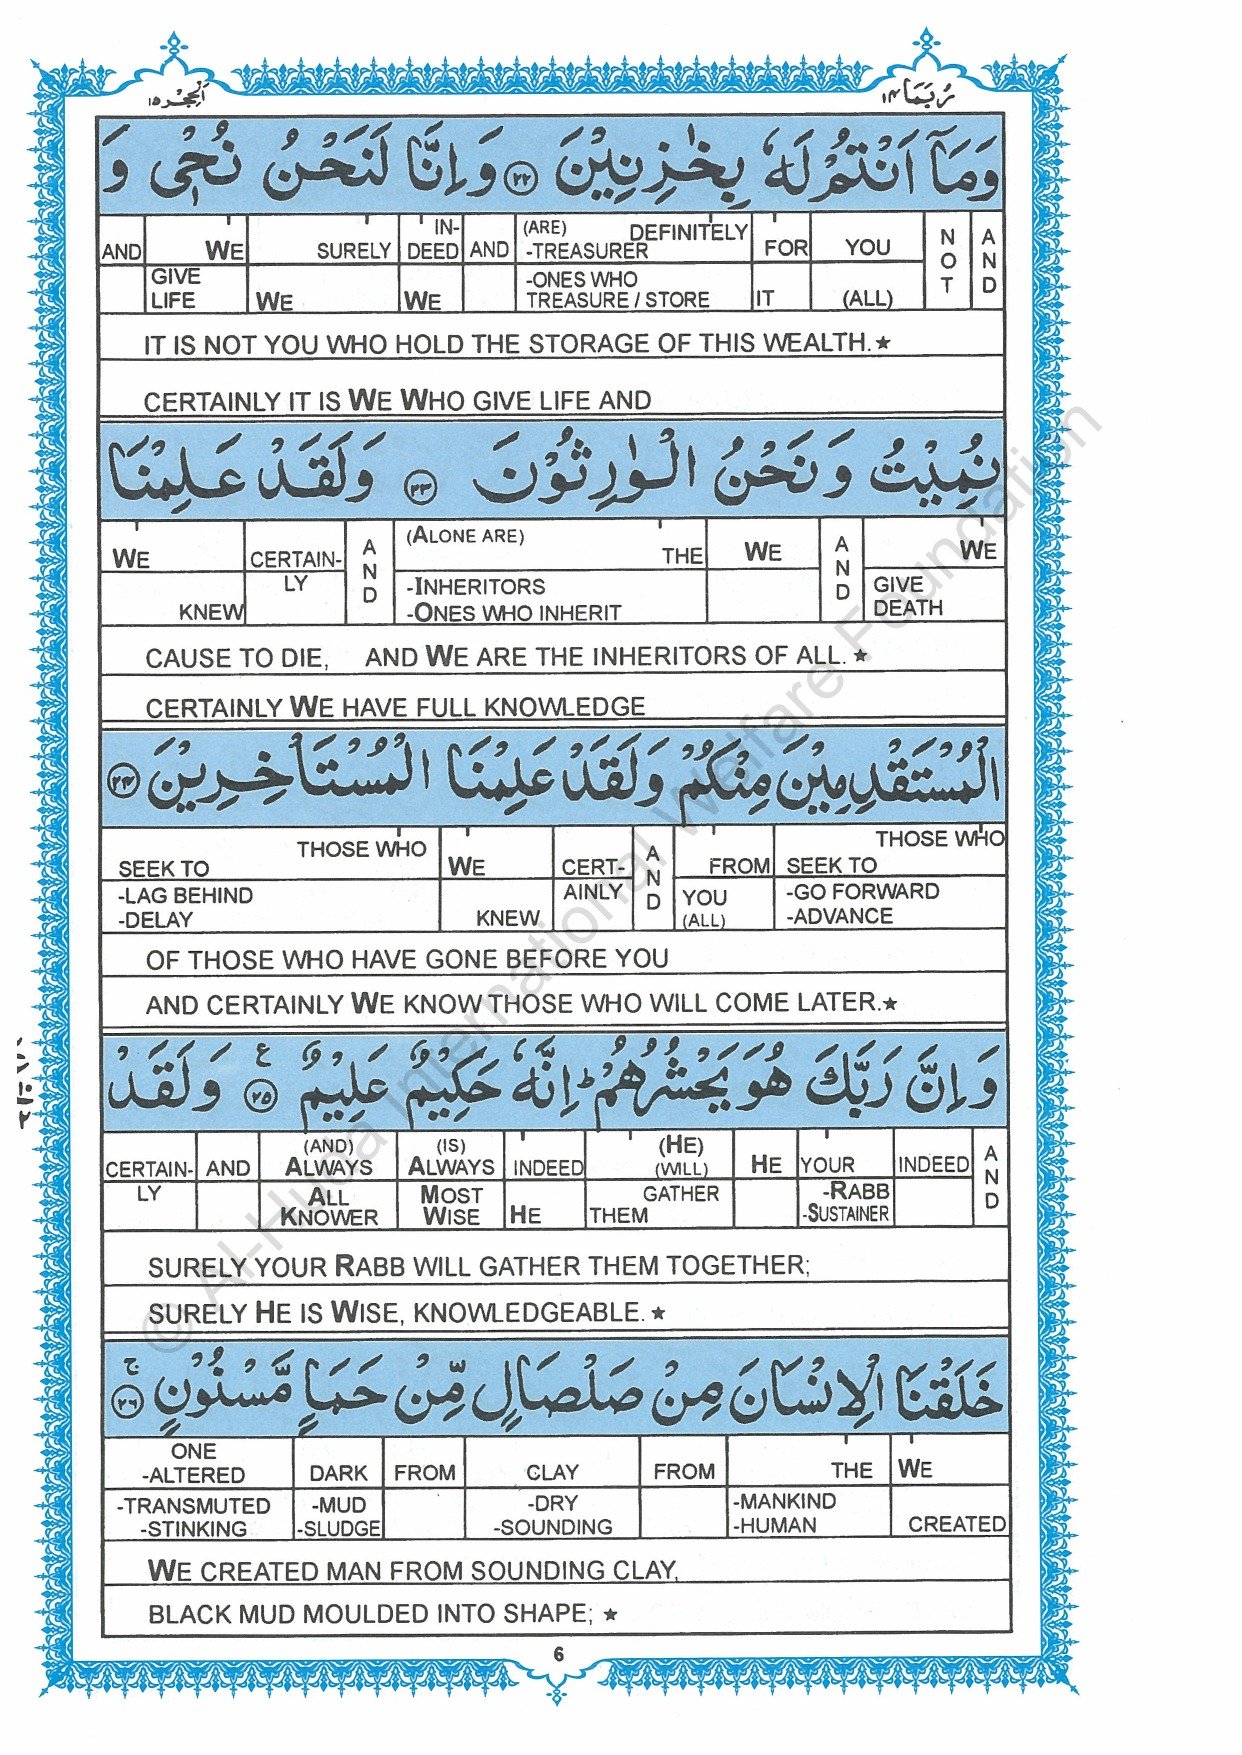 الحجر ١٥
ربما ١٤
وَمَآ اَنْتُمْ لَهٗ بِخٰزِنِيْنَ ٢٢ وَاِنَّا لَنَحْنُ نُحْيٖ وَ
AND WE SURELY IN- (ARE) DEFINITELY FOR YOU NOT AND
DEED AND -TREASURER
GIVE LIFE WE WE -ONES WHO TREASURE / STORE IT (ALL)
IT IS NOT YOU WHO HOLD THE STORAGE OF THIS WEALTH.★
CERTAINLY IT IS WE WHO GIVE LIFE AND
نُمِيْتُ وَنَحْنُ الْوٰرِثُوْنَ ٢٣ وَلَقَدْ عَلِمْنَا
WE CERTAIN- AND (ALONE ARE) THE WE AND WE
KNEW LY -INHERITORS GIVE
-ONES WHO INHERIT DEATH
CAUSE TO DIE, AND WE ARE THE INHERITORS OF ALL.★
CERTAINLY WE HAVE FULL KNOWLEDGE
الْمُسْتَقْدِمِيْنَ مِنْكُمْ وَلَقَدْ عَلِمْنَا الْمُسْتَاْخِرِيْنَ ٢٤
THOSE WHO WE CERT- AND FROM THOSE WHO
SEEK TO SEEK TO
-LAG BEHIND AINLY YOU -GO FORWARD
-DELAY KNEW (ALL) -ADVANCE
OF THOSE WHO HAVE GONE BEFORE YOU
AND CERTAINLY WE KNOW THOSE WHO WILL COME LATER.★
وَاِنَّ رَبَّكَ هُوَ يَحْشُرُهُمْ ؕ اِنَّهٗ حَكِيْمٌ عَلِيْمٌ ٢٥ ع وَلَقَدْ
(AND) (IS) (HE) AND
CERTAIN- AND ALWAYS ALWAYS INDEED (WILL) HE YOUR INDEED
LY ALL MOST GATHER -RABB
KNOWER WISE HE THEM -SUSTAINER
SURELY YOUR RABB WILL GATHER THEM TOGETHER;
SURELY HE IS WISE, KNOWLEDGEABLE.★
خَلَقْنَا الْاِنْسَانَ مِنْ صَلْصَالٍ مِّنْ حَمَاٍ مَّسْنُوْنٍ ٢٦ ج
ONE
-ALTERED DARK FROM CLAY FROM THE WE
-TRANSMUTED -MUD -DRY -MANKIND
-STINKING -SLUDGE -SOUNDING -HUMAN CREATED
WE CREATED MAN FROM SOUNDING CLAY,
BLACK MUD MOULDED INTO SHAPE; ★
6
© Al-Huda International Welfare Foundation